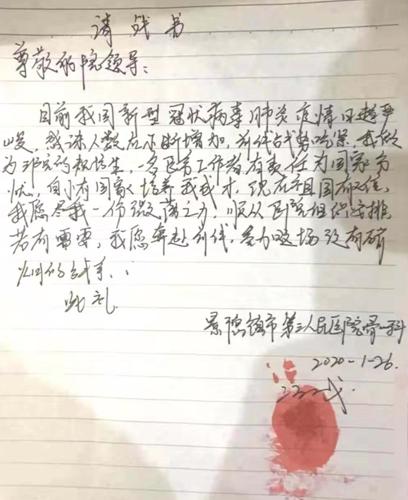 请战书
尊敬的院领导：
目前我国新型冠状病毒肺炎疫情日趋严
峻，感染人数在不断增加，前线战势吃紧，我做
为邓院的 生，多 工作者有责任为国家分
忧，自小有国家培养我成才，现在祖国有难，
我愿尽我一份微薄之力，服从医院组织安排
若有需要，我愿奔赴前线，参加这场没有硝
烟的战争。：
此礼
景德镇市第三人民医院骨一科
2020-1-26.